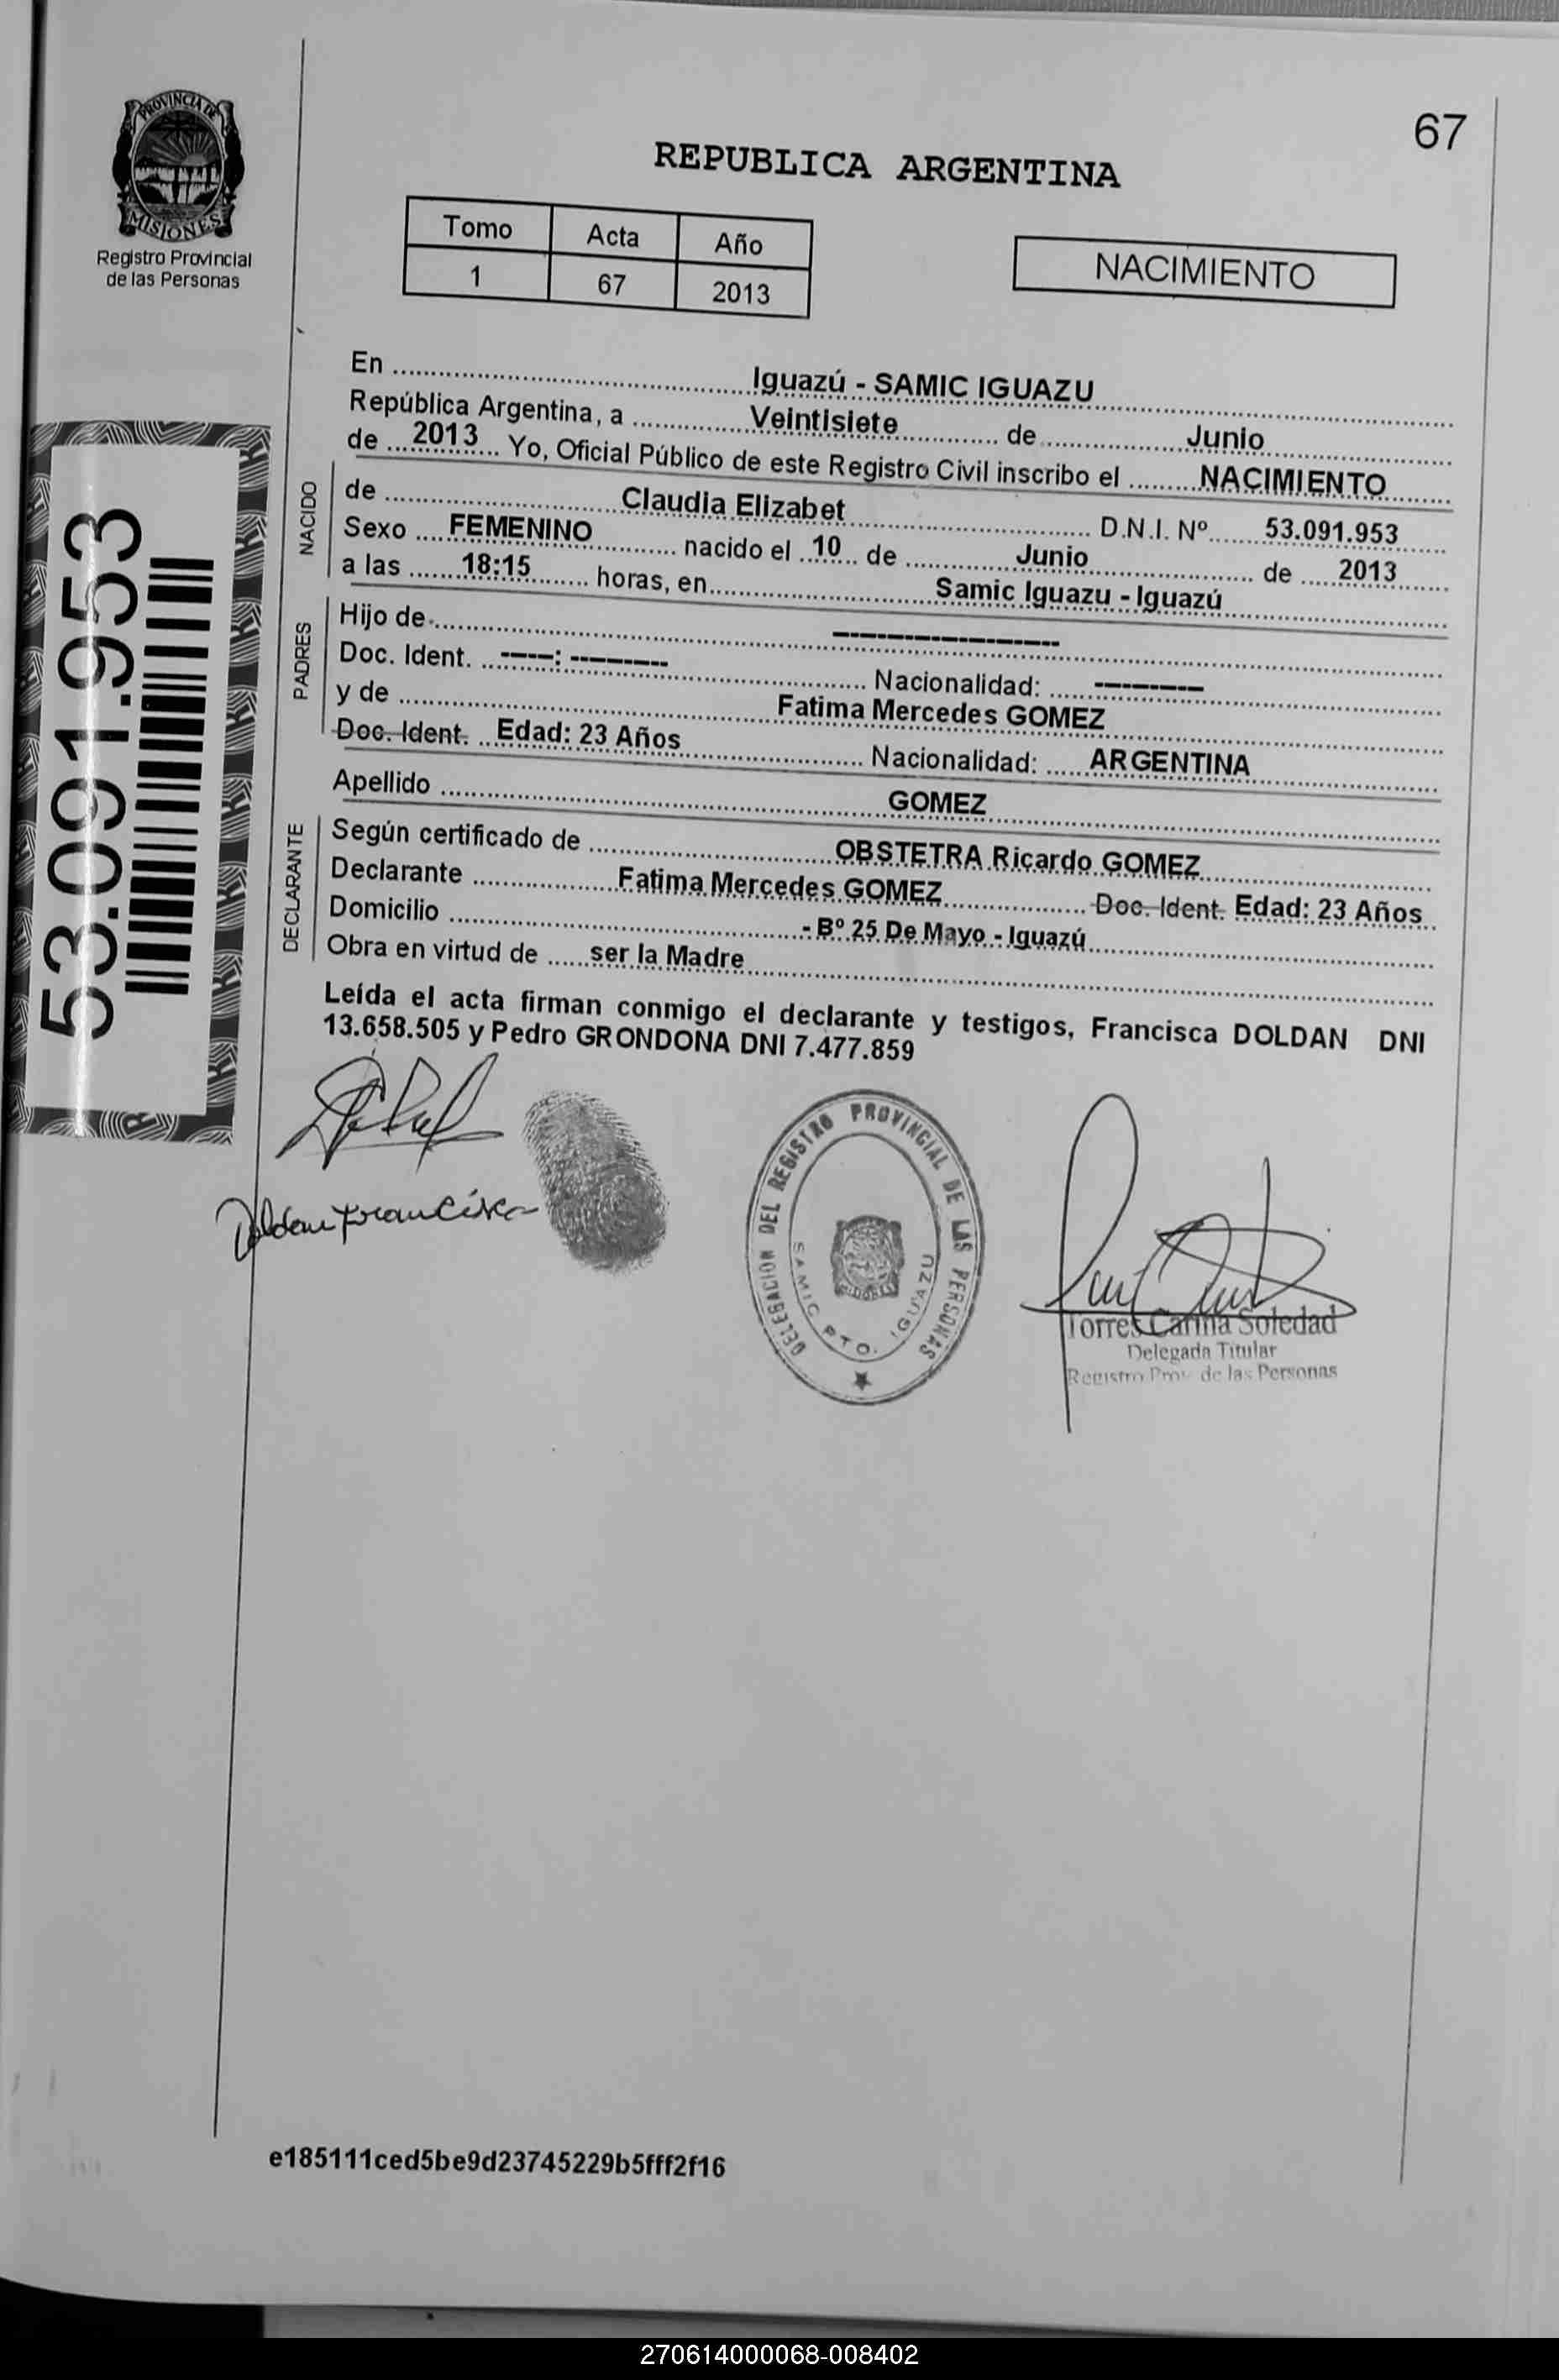 67
PROVINCIA DE
MISIONES
Registro Provincial
de las Personas
REPUBLICA ARGENTINA
Tomo Acta Año
1 67 2013
NACIMIENTO
En Iguazú - SAMIC IGUAZU
República Argentina, a Veintisiete de Junio
de 2013 Yo, Oficial Público de este Registro Civil inscribo el NACIMIENTO
NACIDO
de Claudia Elizabet D.N.I. Nº 53.091.953
Sexo FEMENINO nacido el 10 de Junio de 2013
a las 18:15 horas, en Samic Iguazu - Iguazú
PADRES
Hijo de ------------------
Doc. Ident. ----: -------- Nacionalidad: ---------
y de Fatima Mercedes GOMEZ
Doc. Ident. Edad: 23 Años Nacionalidad: ARGENTINA
Apellido GOMEZ
DECLARANTE
Según certificado de OBSTETRA Ricardo GOMEZ
Declarante Fatima Mercedes GOMEZ Doc. Ident. Edad: 23 Años
Domicilio - Bº 25 De Mayo - Iguazú
Obra en virtud de ser la Madre
Leída el acta firman conmigo el declarante y testigos, Francisca DOLDAN DNI
13.658.505 y Pedro GRONDONA DNI 7.477.859
53.091.953
Doldan Francisca
DELEGACION DEL REGISTRO PROVINCIAL DE LAS PERSONAS
SAMIC PTO. IGUAZU
Torres Carina Soledad
Delegada Titular
Registro Prov. de las Personas
e185111ced5be9d23745229b5fff2f16
270614000068-008402